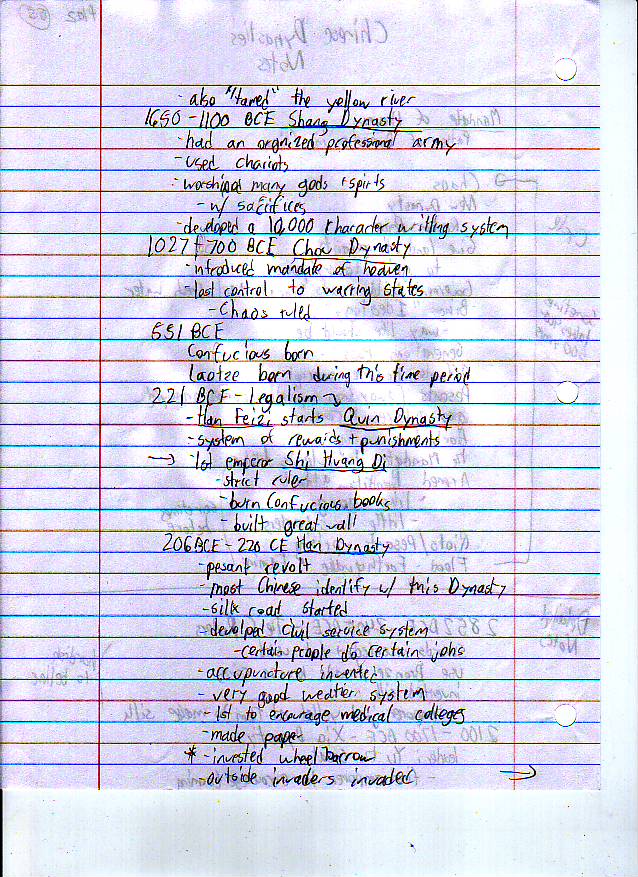 - also "tamed" the yellow river
1650 - 1100 BCE Shang Dynasty
- had an orgnized professional army
- used chariots
- worshipped many gods + spirts
- w/ sacrifices
- developed a 10,000 character writting system
1027 - 700 BCE Chou Dynasty
- introduced mandate of heaven
- lost control to warring states
- Chaos ruled
551 BCE
Confucious born
Laotze born during this time period
221 BCE - Legalism
- Han Feizi starts Quin Dynasty
- system of rewards + punishments
→ 1st emperor Shi Huang Di
- strict ruler
- burn Confucious books
- built great wall
206 BCE - 220 CE Han Dynasty
- pesant revolt
- most Chinese identify w/ this Dynasty
- silk road started
- devolped civil service system
- certain people do certain jobs
- accupuncture invented
- very good weather system
- 1st to encourage medical colleges
- made paper
* - invested wheel barrow
- outside invaders invaded →